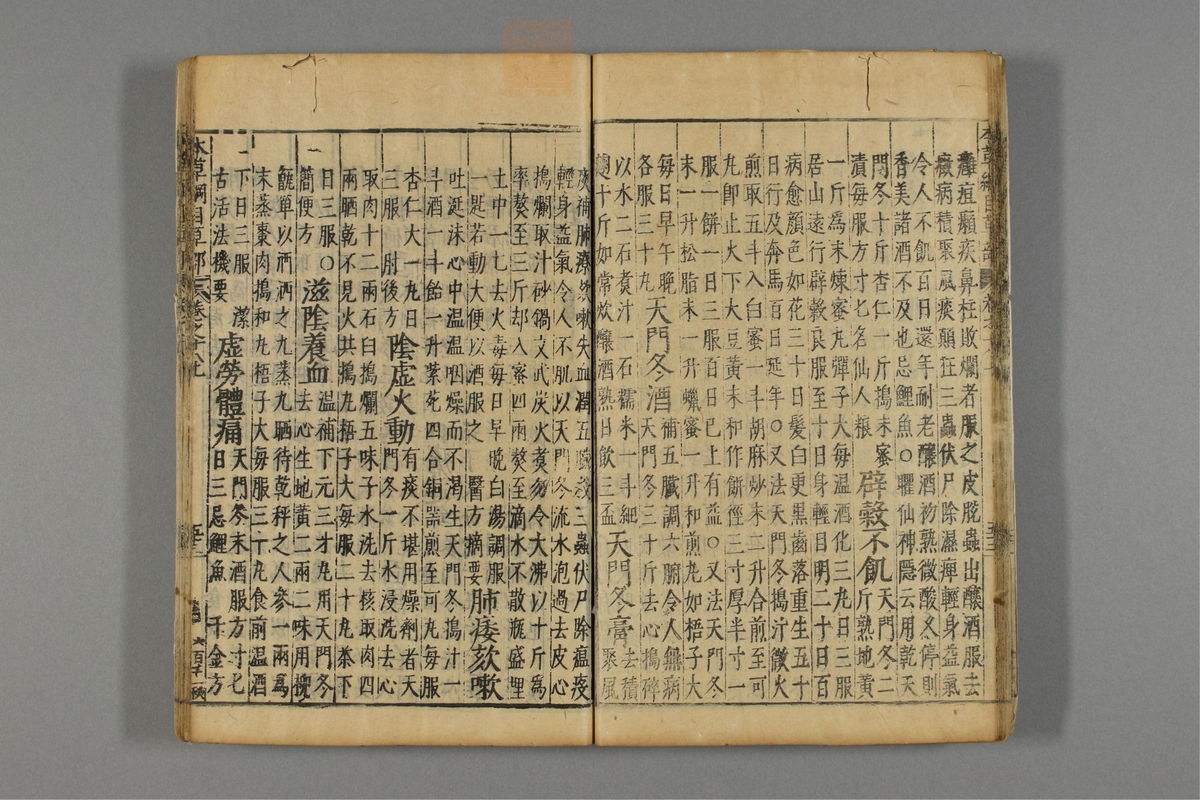 本草綱目草部 卷之十八
癰疽癩疾鼻柱敗爛者服之皮脫蟲出釀酒服去
癥病積聚風痰顛狂三蟲伏尸除濕痺輕身益氣
令人不飢百日還年耐老釀酒初熟微酸久停則
香美諸酒不及也忌鯉魚○臞仙神隱云用乾天
門冬十斤杏仁一斤搗末蜜
漬每服方寸匕名仙人粮 辟穀不飢 天門冬二斤熟地黄
一斤爲末煉蜜丸彈子大每温酒化三丸日三服
居山遠行辟穀良服至十日身輕目明二十日百
病愈顔色如花三十日髮白更黑齒落重生五十
日行及奔馬百日延年○又法天門冬搗汁微火
煎取五斗入白蜜一斗胡麻炒末二升合煎至可
丸即止火下大豆黄末和作餅徑三寸厚半寸一
服一餅一日三服百日已上有益○又法天門冬
末一升松脂末一升蠟蜜一升和煎丸如梧子大
每日早午晚
各服三十丸 天門冬酒 補五臟調六腑令人無病天門冬三十斤去心搗碎
以水二石煮汁一石糯米一斗細
麴十斤如常炊釀酒熟日飲三盃 天門冬膏 去積聚風
痰補肺療欬嗽失血潤五臟殺三蟲伏尸除瘟疫
輕身益氣令人不飢以天門冬流水泡過去皮心
搗爛取汁砂鍋文武炭火煮勿令大沸以十斤爲
率熬至三斤却入蜜四兩熬至滴水不散瓶盛埋
土中一七去火毒每日早晚白湯調服
一匙若動大便以酒服之 醫方摘要 肺痿欬嗽
吐涎沫心中温温咽燥而不渴生天門冬搗汁一
斗酒一斗飴一升紫菀四合銅器煎至可丸每服
杏仁大一丸日
三服 肘後方 陰虚火動 有痰不堪用燥劑者天門冬一斤水浸洗去心
取肉十二兩石臼搗爛五味子水洗去核取肉四
兩晒乾不見火共搗丸梧子大每服二十丸茶下
日三服○
簡便方 滋陰養血 温補下元三才丸用天門冬去心生地黄二兩二味用柳
甑箄以酒洒之九蒸九晒待乾秤之人參一兩爲
末蒸棗肉搗和丸梧子大每服三十丸食前温酒
下日三服 潔
古活法機要 虚勞體痛 天門冬末酒服方寸匕日三忌鯉魚 千金方
本草綱目草部 卷之十八